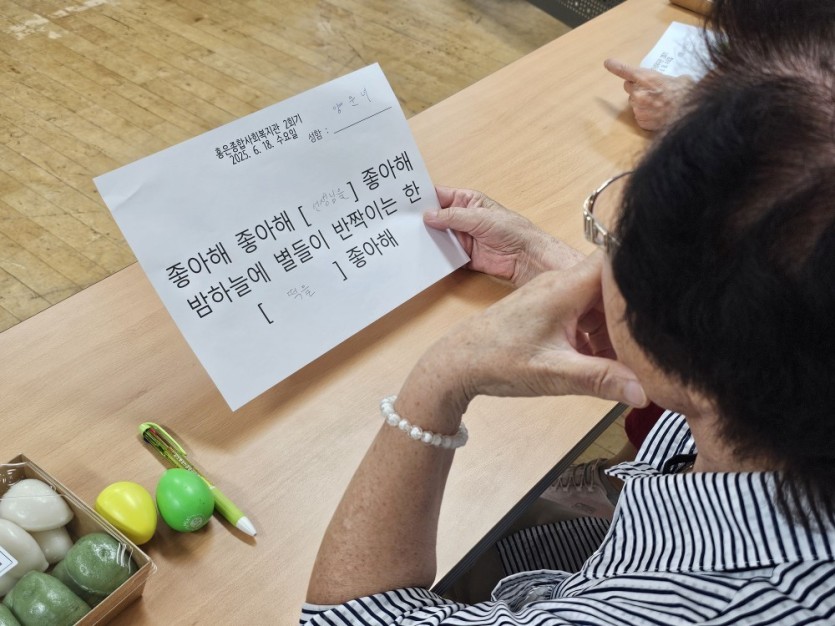 홍은종합사회복지관 2회기
2025. 6. 18. 수요일
성함 :
좋아해 좋아해 [ 선생님을 ] 좋아해
밤하늘에 별들이 반짝이는 한
[ 떡을 ] 좋아해